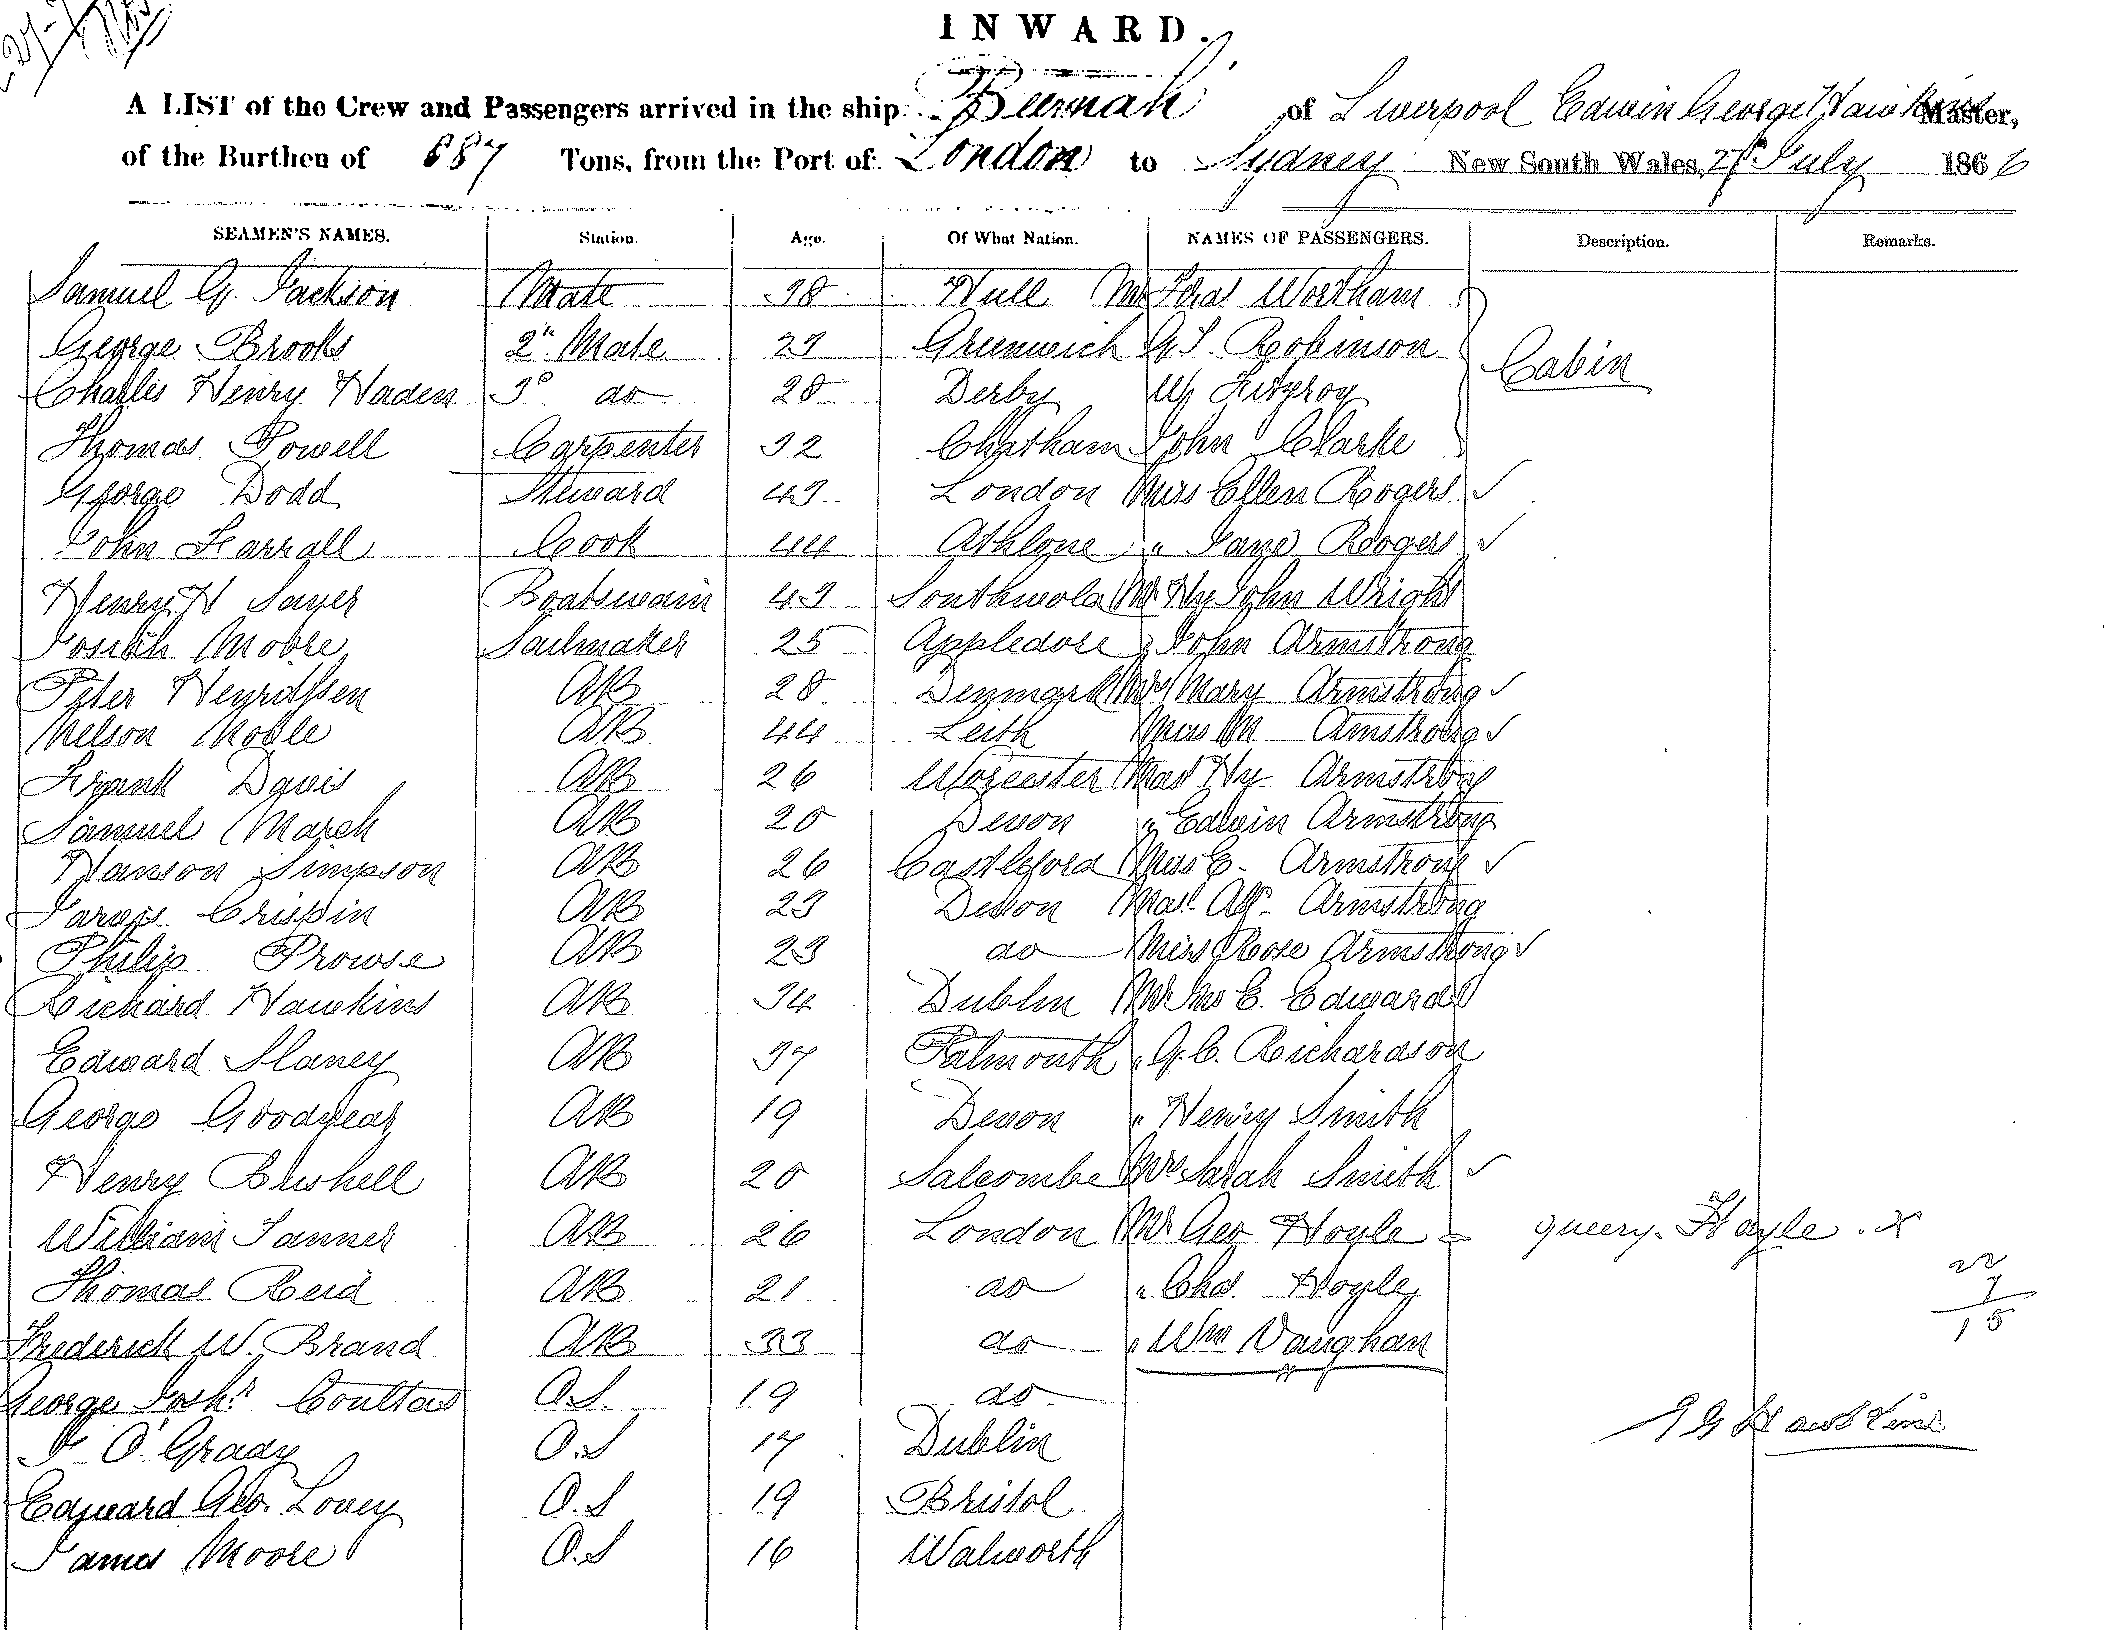 INWARD.
A LIST of the Crew and Passengers arrived in the ship Burmah of Liverpool Edwin George Hawkins Master,
of the Burthen of 887 Tons, from the Port of London to Sydney New South Wales, 27th July 1866
SEAMEN'S NAMES. Station. Age. Of What Nation. NAMES OF PASSENGERS. Description. Remarks.
Samuel G. Jackson Mate 38 Hull Mr Wortham
George Brooks 2nd Mate 23 Greenwich G S. Robinson
Charles Henry Haden 3d do 20 Derby W Fitzroy Cabin
Thomas Powell Carpenter 32 Chatham John Clarke
George Dodd Steward 43 London Miss Ellen Rogers ✓
John Farrall Cook 44 Athlone " Jane Rogers ✓
Henry H Sayer Boatswain 43 Southwold Mr Hy John Wright
Joseph Moore Sailmaker 25 Appledore " John Armstrong
Peter AB 28 Denmark Mrs Mary Armstrong ✓
Nelson Moble AB 44 Leith Miss M Amstrong ✓
Frank Davis AB 26 Worcester Mas Hy Armstrong
Samuel March AB 20 Devon " Edwin Armstrong
Hanson Simpson AB 26 Castleford Miss E. Armstrong ✓
Jarvis Crispin AB 23 Devon Mas. Alf. Armstrong
Philip Prowse AB 23 do Miss Rose Armstrong ✓
Richard Hawkins AB 34 Dublin Mr Jno E. Edwards
Edward Slaney AB 37 Falmouth " G. C. Richardson
George Goodyear AB 19 Devon " Henry Smith
Henry Bushell AB 20 Salcombe Mrs Sarah Smith ✓
William Tanner AB 26 London Mr Geo Hoyle = query. Hayle. x
Thomas Reid AB 21 do " Chas. Hoyle 22
7
Frederick W. Brand AB 33 do " Wm Vaughan 15
George Josh. Coultas O.S. 19 do
J O'Grady O.S 17 Dublin E G Hawkins
Edward Geo. Loney O.S 19 Bristol
James Moore O.S 16 Walworth